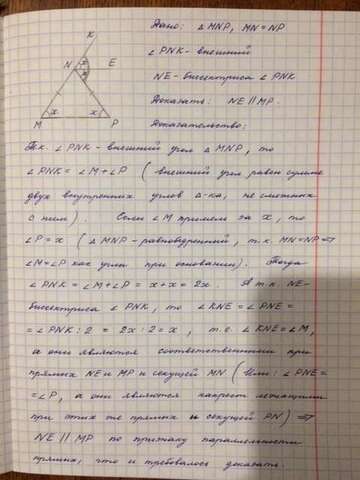 K
Дано: △MNP, MN = NP
∠PNK - внешний
N x E
x
NE - биссектриса ∠PNK
Доказать: NE ∥ MP.
x x
M P
Доказательство:
Т.к. ∠PNK - внешний угол △MNP, то
∠PNK = ∠M + ∠P ( внешний угол равен сумме
двух внутренних углов △-ка, не смежных
с ним ). Если ∠M примем за x, то
∠P = x ( △MNP - равнобедренный, т.к. MN = NP ⇒
∠M = ∠P как углы при основании). Тогда
∠PNK = ∠M + ∠P = x + x = 2x. А т.к. NE-
биссектриса ∠PNK, то ∠KNE = ∠PNE =
= ∠PNK : 2 = 2x : 2 = x, т.е. ∠KNE = ∠M,
а они являются соответственными при
прямых NE и MP и секущей MN ( Или: ∠PNE =
= ∠P, а они являются накрест лежащими
при этих же прямых и секущей PN) ⇒
NE ∥ MP по признаку параллельности
прямых, что и требовалось доказать.